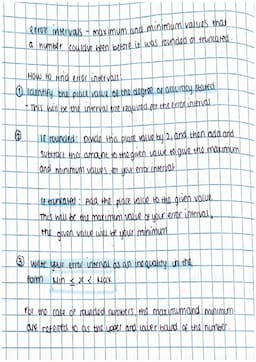 error intervals - maximum and minimum values that
a number couldve been before it was rounded or truncated.
How to find error intervals:
① Identify the place value of the degree of accuracy stated
- This will be the interval size required for the error interval
② If rounded: Divide this place value by 2, and then add and
subtract this amount to the given value to give the maximum
and minimum values of your error interval
If truncated: Add the place value to the given value.
This will be the maximum value of your error interval,
the given value will be your minimum
③ Write your error interval as an inequality in the
form Min ≤ x < Max
For the case of rounded numbers, the maximum and minimum
are referred to as the upper and lower bound of the number.